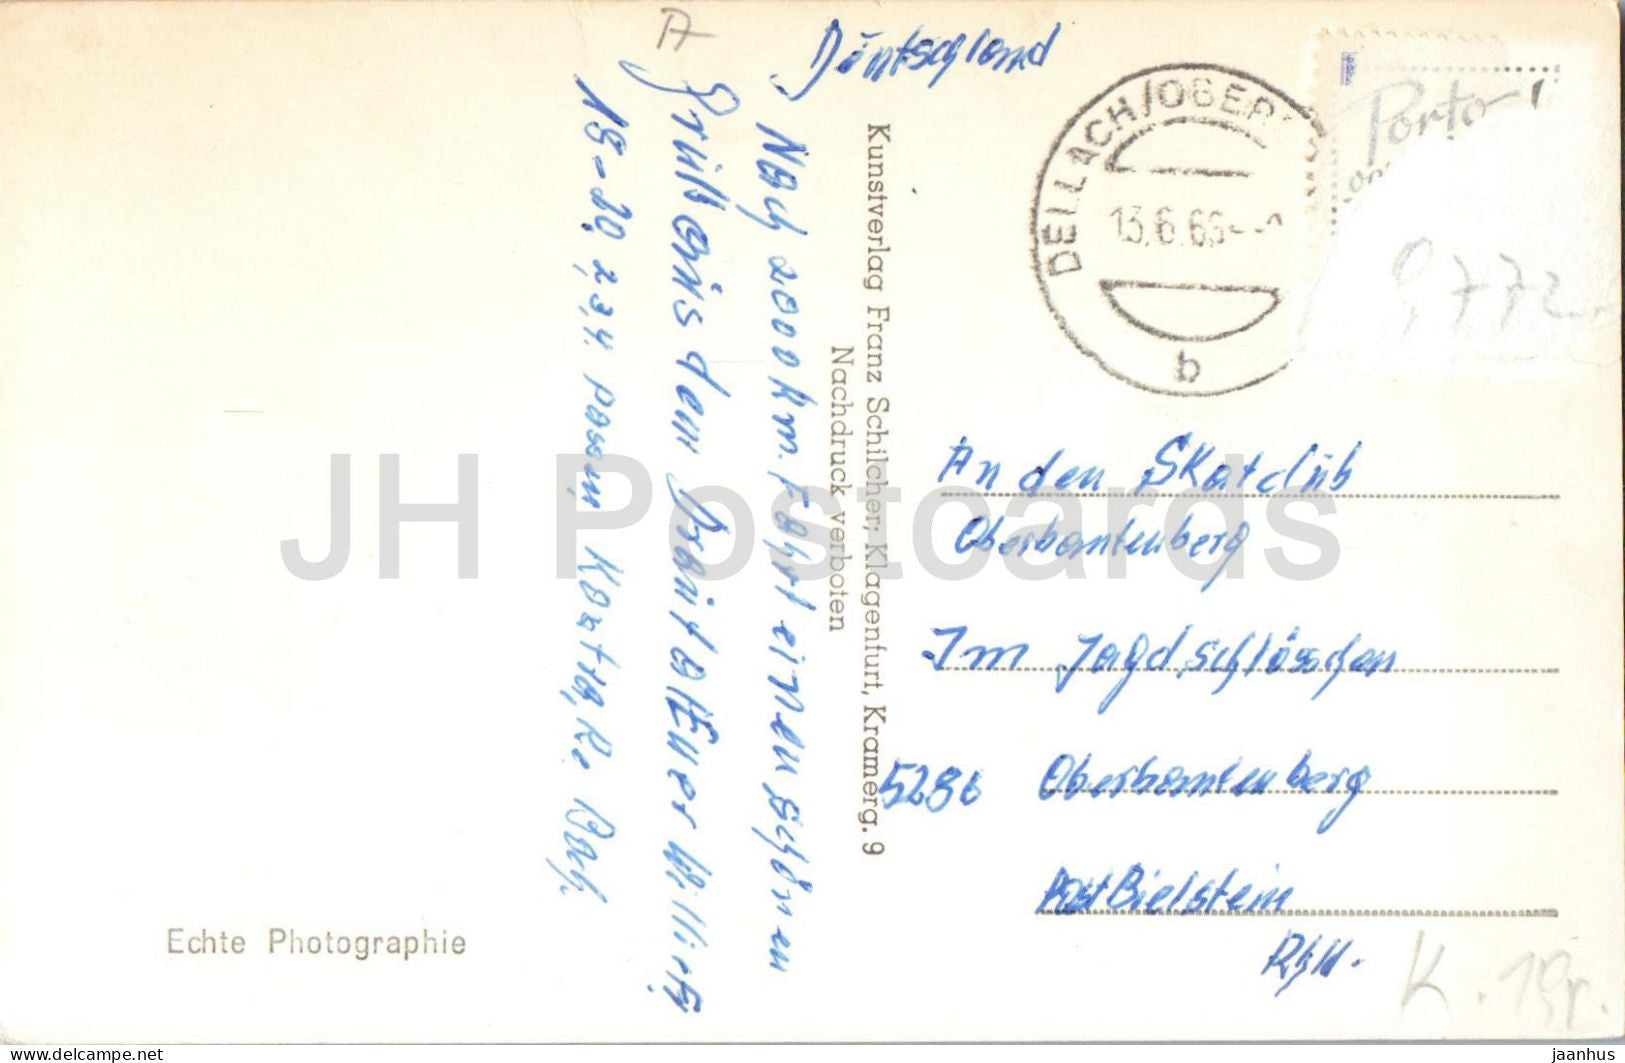 Deutschland
Nach 2000 km. Fahrt einen schönen
Gruß aus dem Euer Willi
18-20, 2,3,4, passen Kontra, Re Bach.
Kunstverlag Franz Schilcher, Klagenfurt, Kramerg. 9
Nachdruck verboten
Echte Photographie
DELLACH/OBER
13.6.66
b
Porto
An den Skatclub
Oberbantenberg
Im Jagdschlösschen
5286 Oberbantenberg
Post Bielstein
Rhld.
JH Postcards
delcampe.net
jaanhus